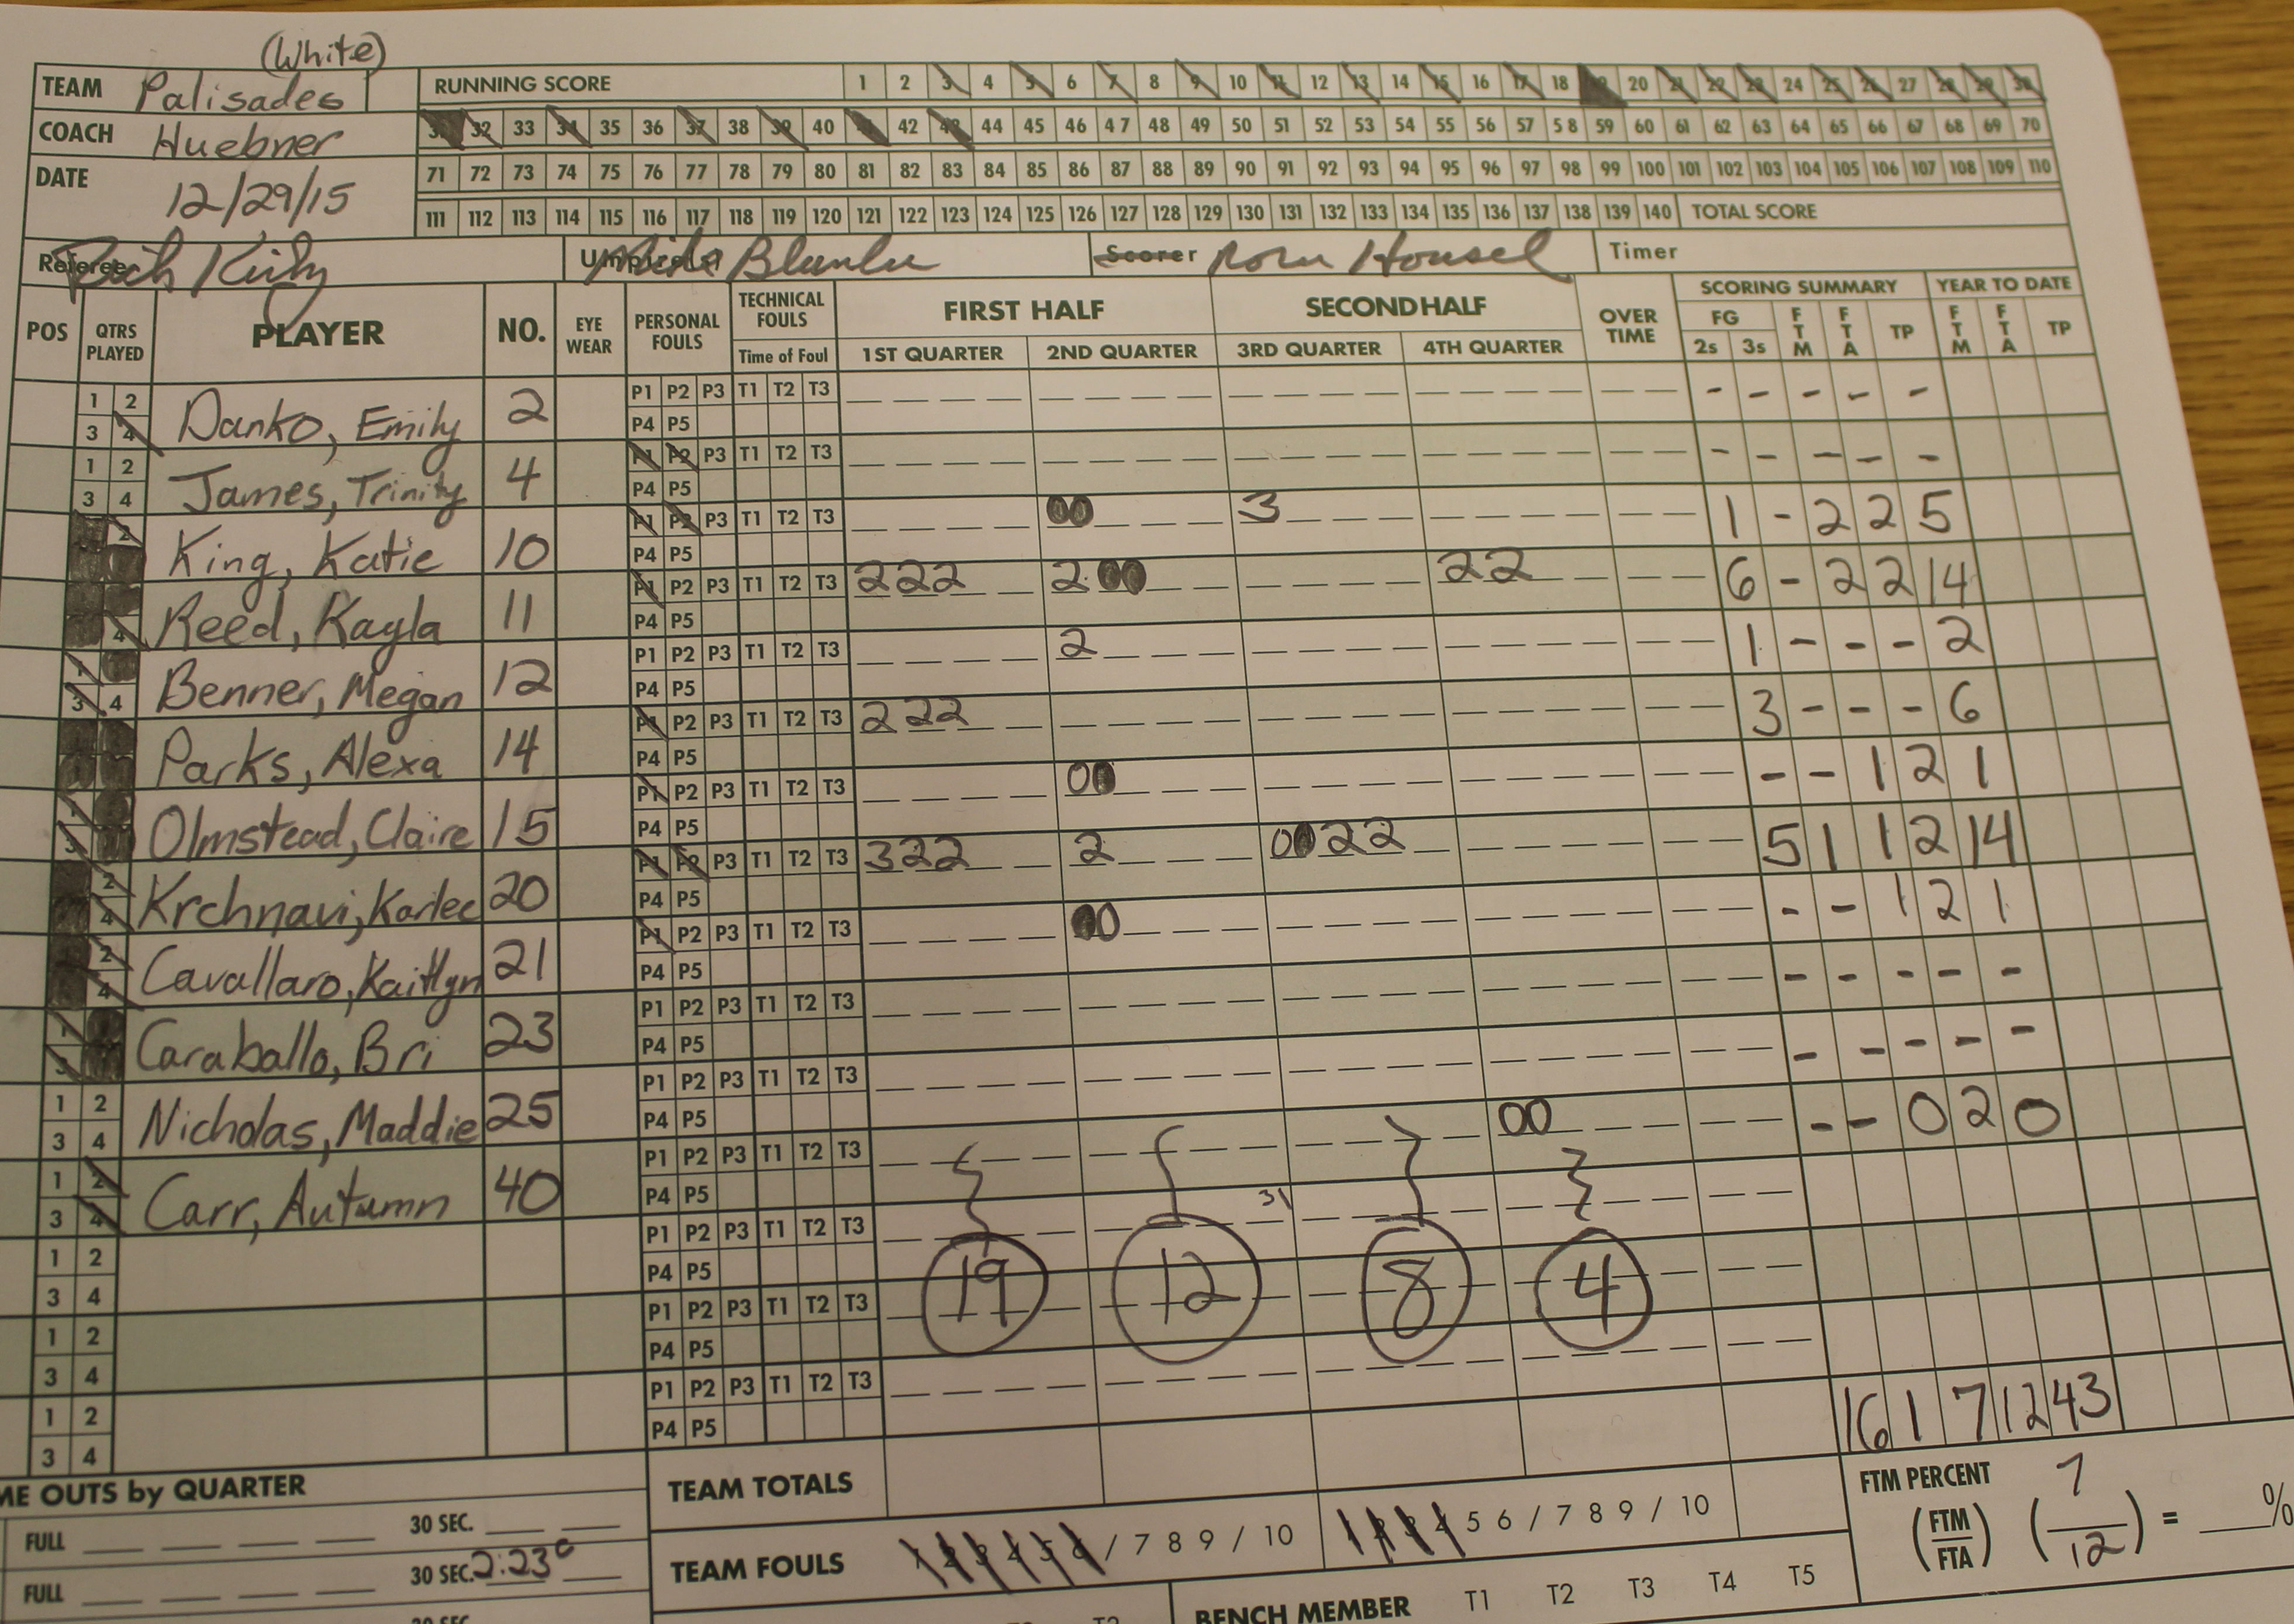 (White)
TEAM Palisades
RUNNING SCORE 1 2 3 4 5 6 7 8 9 10 11 12 13 14 15 16 17 18 19 20 21 22 23 24 25 26 27 28 29 30
COACH Huebner
31 32 33 34 35 36 37 38 39 40 41 42 43 44 45 46 47 48 49 50 51 52 53 54 55 56 57 58 59 60 61 62 63 64 65 66 67 68 69 70
DATE 12/29/15
71 72 73 74 75 76 77 78 79 80 81 82 83 84 85 86 87 88 89 90 91 92 93 94 95 96 97 98 99 100 101 102 103 104 105 106 107 108 109 110
111 112 113 114 115 116 117 118 119 120 121 122 123 124 125 126 127 128 129 130 131 132 133 134 135 136 137 138 139 140 TOTAL SCORE
Referee Umpire(s) Scorer Housel Timer
POS QTRS PLAYED PLAYER NO. EYE WEAR PERSONAL FOULS TECHNICAL FOULS Time of Foul FIRST HALF 1ST QUARTER 2ND QUARTER SECOND HALF 3RD QUARTER 4TH QUARTER OVER TIME SCORING SUMMARY FG 2s 3s FTM FTA TP YEAR TO DATE FTM FTA TP
1 2 3 4 Danko, Emily 2 P1 P2 P3 T1 T2 T3 P4 P5 - - - - -
1 2 3 4 James, Trinity 4 P1 P2 P3 T1 T2 T3 P4 P5 - - - - -
2 King, Katie 10 P1 P2 P3 T1 T2 T3 P4 P5 00 3 1 - 2 2 5
4 Reed, Kayla 11 P1 P2 P3 T1 T2 T3 P4 P5 2 2 2 2 00 2 2 6 - 2 2 14
1 3 4 Benner, Megan 12 P1 P2 P3 T1 T2 T3 P4 P5 2 1 - - - 2
Parks, Alexa 14 P1 P2 P3 T1 T2 T3 P4 P5 2 2 2 3 - - - 6
1 3 Olmstead, Claire 15 P1 P2 P3 T1 T2 T3 P4 P5 00 - - 1 2 1
2 4 Krchnavi, Karlee 20 P1 P2 P3 T1 T2 T3 P4 P5 3 2 2 2 00 2 2 5 1 1 2 14
2 4 Cavallaro, Kaitlyn 21 P1 P2 P3 T1 T2 T3 P4 P5 00 - - 1 2 1
1 3 Caraballo, Bri 23 P1 P2 P3 T1 T2 T3 P4 P5 - - - - -
1 2 3 4 Nicholas, Maddie 25 P1 P2 P3 T1 T2 T3 P4 P5 - - - - -
1 2 3 4 Carr, Autumn 40 P1 P2 P3 T1 T2 T3 P4 P5 00 - - 0 2 0
31
1 2 3 4 P1 P2 P3 T1 T2 T3 P4 P5
19 12 8 4
1 2 3 4 P1 P2 P3 T1 T2 T3 P4 P5
1 2 3 4 P1 P2 P3 T1 T2 T3 P4 P5
16 1 7 12 43
ME OUTS by QUARTER
TEAM TOTALS
FULL 30 SEC.
FULL 30 SEC. 2:23
30 SEC.
TEAM FOULS 1 2 3 4 5 6 / 7 8 9 / 10 1 2 3 4 5 6 / 7 8 9 / 10
FTM PERCENT (FTM/FTA) (7/12) = %
BENCH MEMBER T1 T2 T3 T4 T5